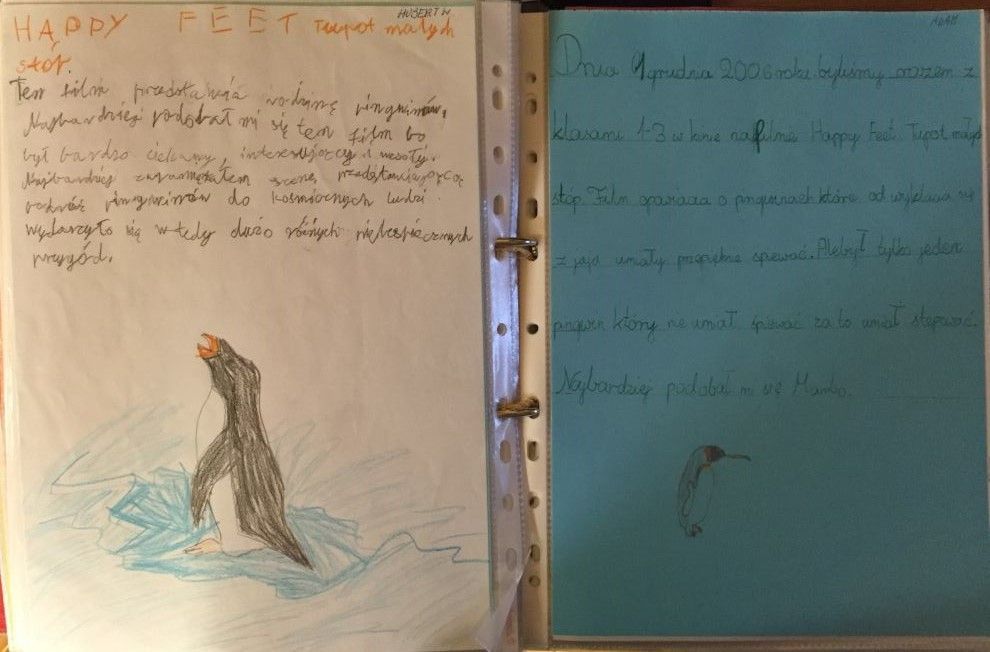 HUBERT W
HAPPY FEET Tupot małych
stóp.
Ten film przedstawia rodzinę pingwinów.
Najbardziej podobał mi się ten film bo
był bardzo ciekawy, interesujący i wesoły.
Najbardziej zapamiętałem scenę przedstawiającą
podróż pingwinów do kosmicznych ludzi.
wydarzyło się wtedy dużo różnych niebespiecznych
przygód.
ADAM
Dnia 9 grudnia 2006 roku byliśmy razem z
klasami 1-3 w kinie na filmie Happy Feet. Tupot małych
stóp. Film opowiada o pingwinach które od wyklucia się
z jaja umiały przepiękne śpiewać. Ale był tylko jeden
pingwin który nie umiał śpiewać za to umiał stepować.
Najbardziej podobał mi się Mambo.